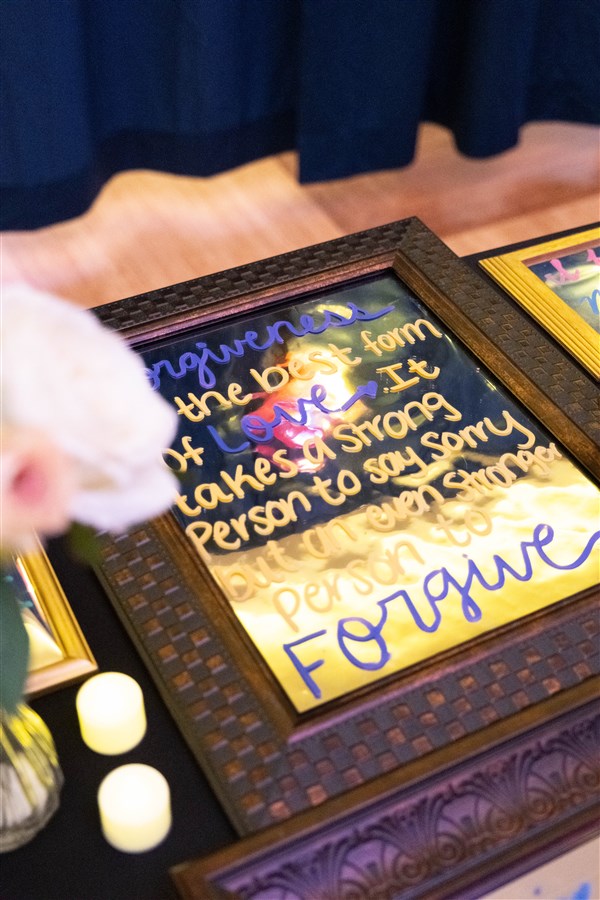 Forgiveness
the best form
of Love It
takes a strong
Person to say sorry
but an even stronger
Person to
Forgive